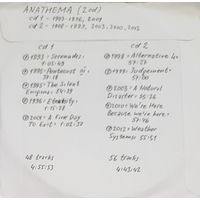 ANATHEMA (2 cd)
cd 1 - 1993-1996, 2001
cd 2 - 1998-1999, 2003, 2010, 2013
cd 1
1993 - Serenades:
1:05:49
1995 - Pentecost III:
41:18
1995 - The Silent
Enigma: 54:39
1996 - Eternity:
1:15:18
2001 - A Fine Day
To Exit: 1:02:50
48 tracks
4:55:53
cd 2
1998 - Alternative 4:
57:27
1999 - Judgement:
57:00
2003 - A Natural
Disaster: 55:36
2010 - We're Here
Because we're here:
57:46
2013 - Weather
Systems: 55:51
56 tracks
4:43:42